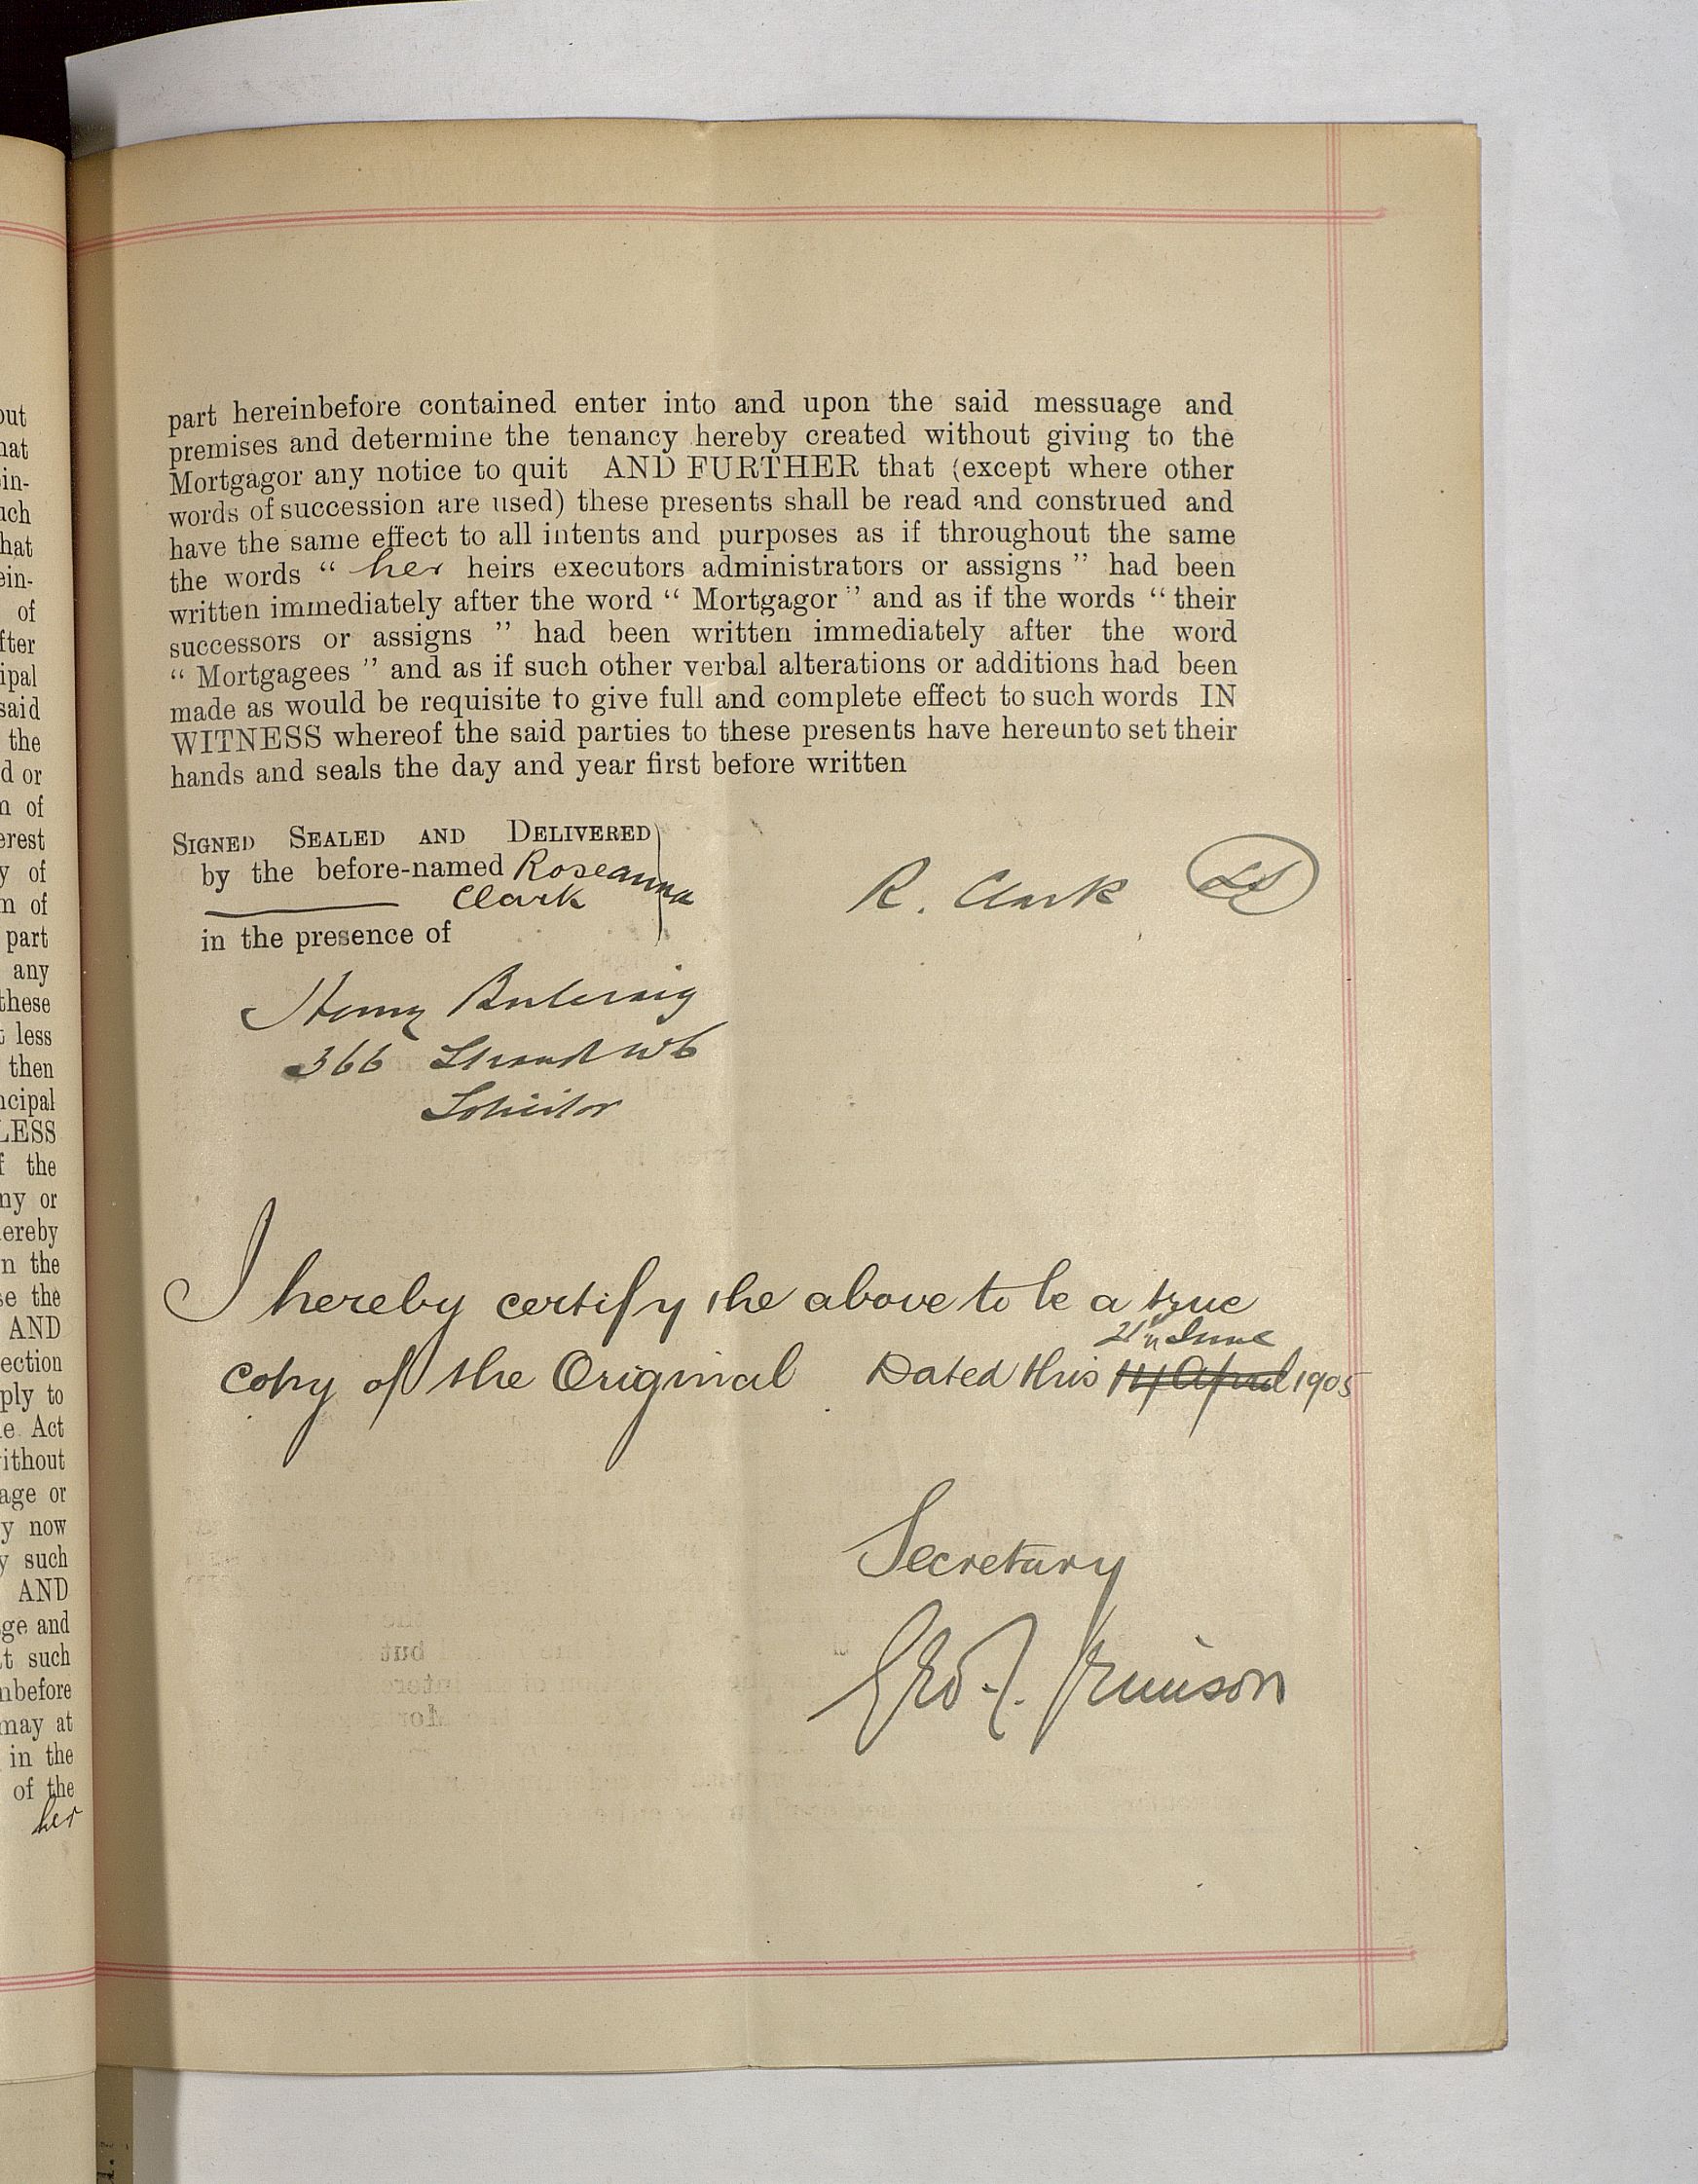 out
hat
in-
uch
hat
ein-
of
fter
ipal
said
the
d or
n of
erest
y of
m of
part
any
these
t less
then
ncipal
LESS
f the
ny or
ereby
n the
se the
AND
ection
ply to
e Act
ithout
age or
y now
y such
AND
ge and
t such
nbefore
may at
in the
of the
her
part hereinbefore contained enter into and upon the said messuage and
premises and determine the tenancy hereby created without giving to the
Mortgagor any notice to quit AND FURTHER that (except where other
words of succession are used) these presents shall be read and construed and
have the same effect to all intents and purposes as if throughout the same
the words " her heirs executors administrators or assigns " had been
written immediately after the word " Mortgagor " and as if the words " their
successors or assigns " had been written immediately after the word
" Mortgagees " and as if such other verbal alterations or additions had been
made as would be requisite to give full and complete effect to such words IN
WITNESS whereof the said parties to these presents have hereunto set their
hands and seals the day and year first before written
SIGNED SEALED AND DELIVERED
by the before-named Roseanna
Clark
in the presence of
R. Clark LS
Henry
366 Strand WC
Solicitor
I hereby certify the above to be a true
21st June
copy of the Original Dated this 14 April 1905
Secretary
Geo. J.